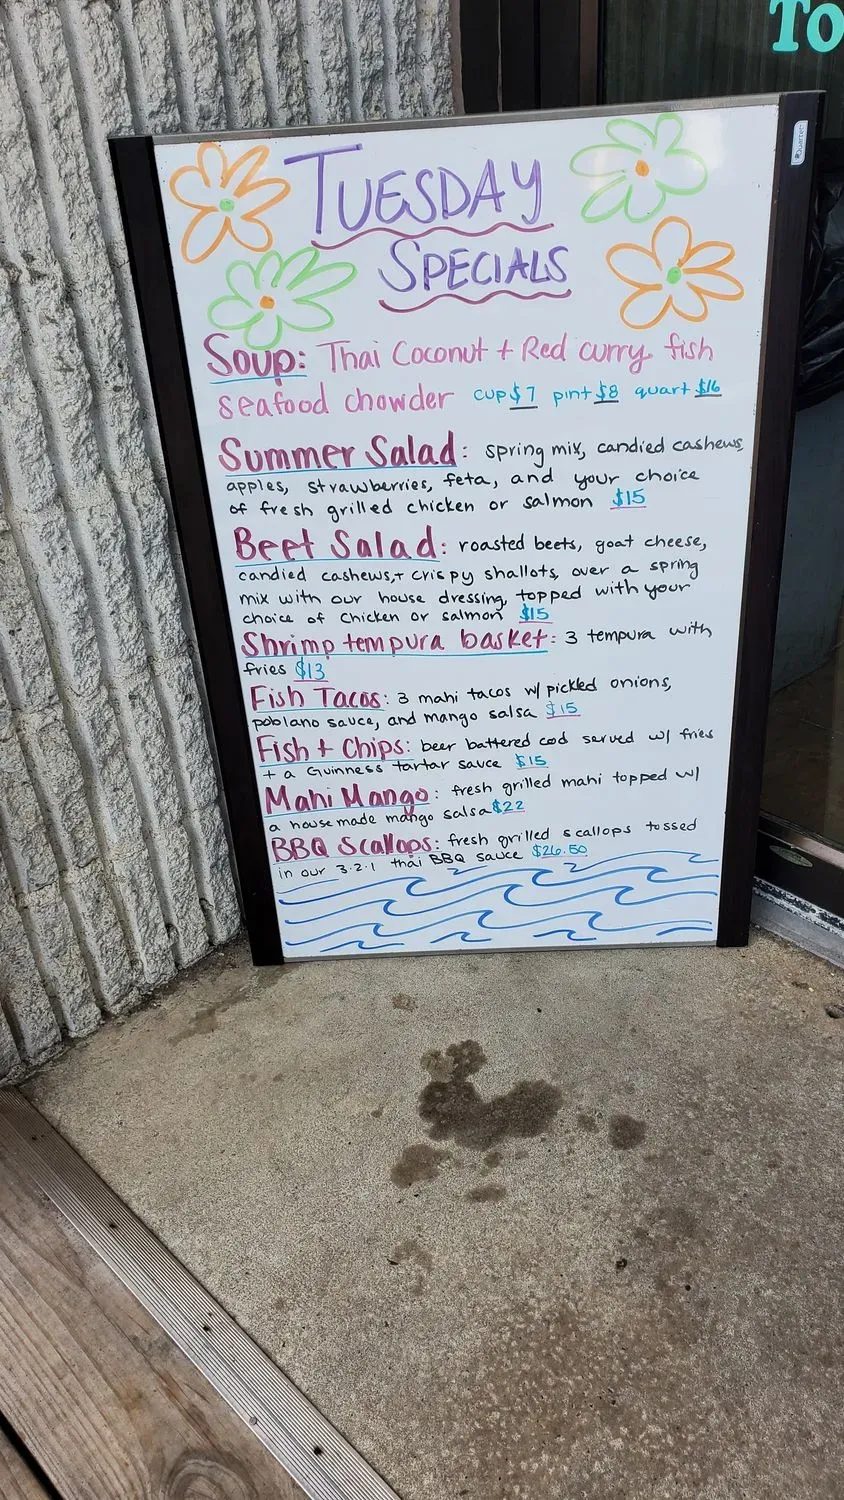 To
Quartet
TUESDAY
SPECIALS
Soup: Thai Coconut + Red curry fish
seafood chowder cup $7 pint $8 quart $16
Summer Salad: spring mix, candied cashews,
apples, strawberries, feta, and your choice
of fresh grilled chicken or salmon $15
Beet Salad: roasted beets, goat cheese,
candied cashews, + crispy shallots, over a spring
mix with our house dressing, topped with your
choice of chicken or salmon $15
Shrimp tempura basket: 3 tempura with
fries $13
Fish Tacos: 3 mahi tacos w/ pickled onions,
poblano sauce, and mango salsa $15
Fish + Chips: beer battered cod served w/ fries
+ a Guinness tartar sauce $15
Mahi Mango: fresh grilled mahi topped w/
a house made mango salsa $22
BBQ Scallops: fresh grilled scallops tossed
in our 3·2·1 thai BBQ sauce $26.50